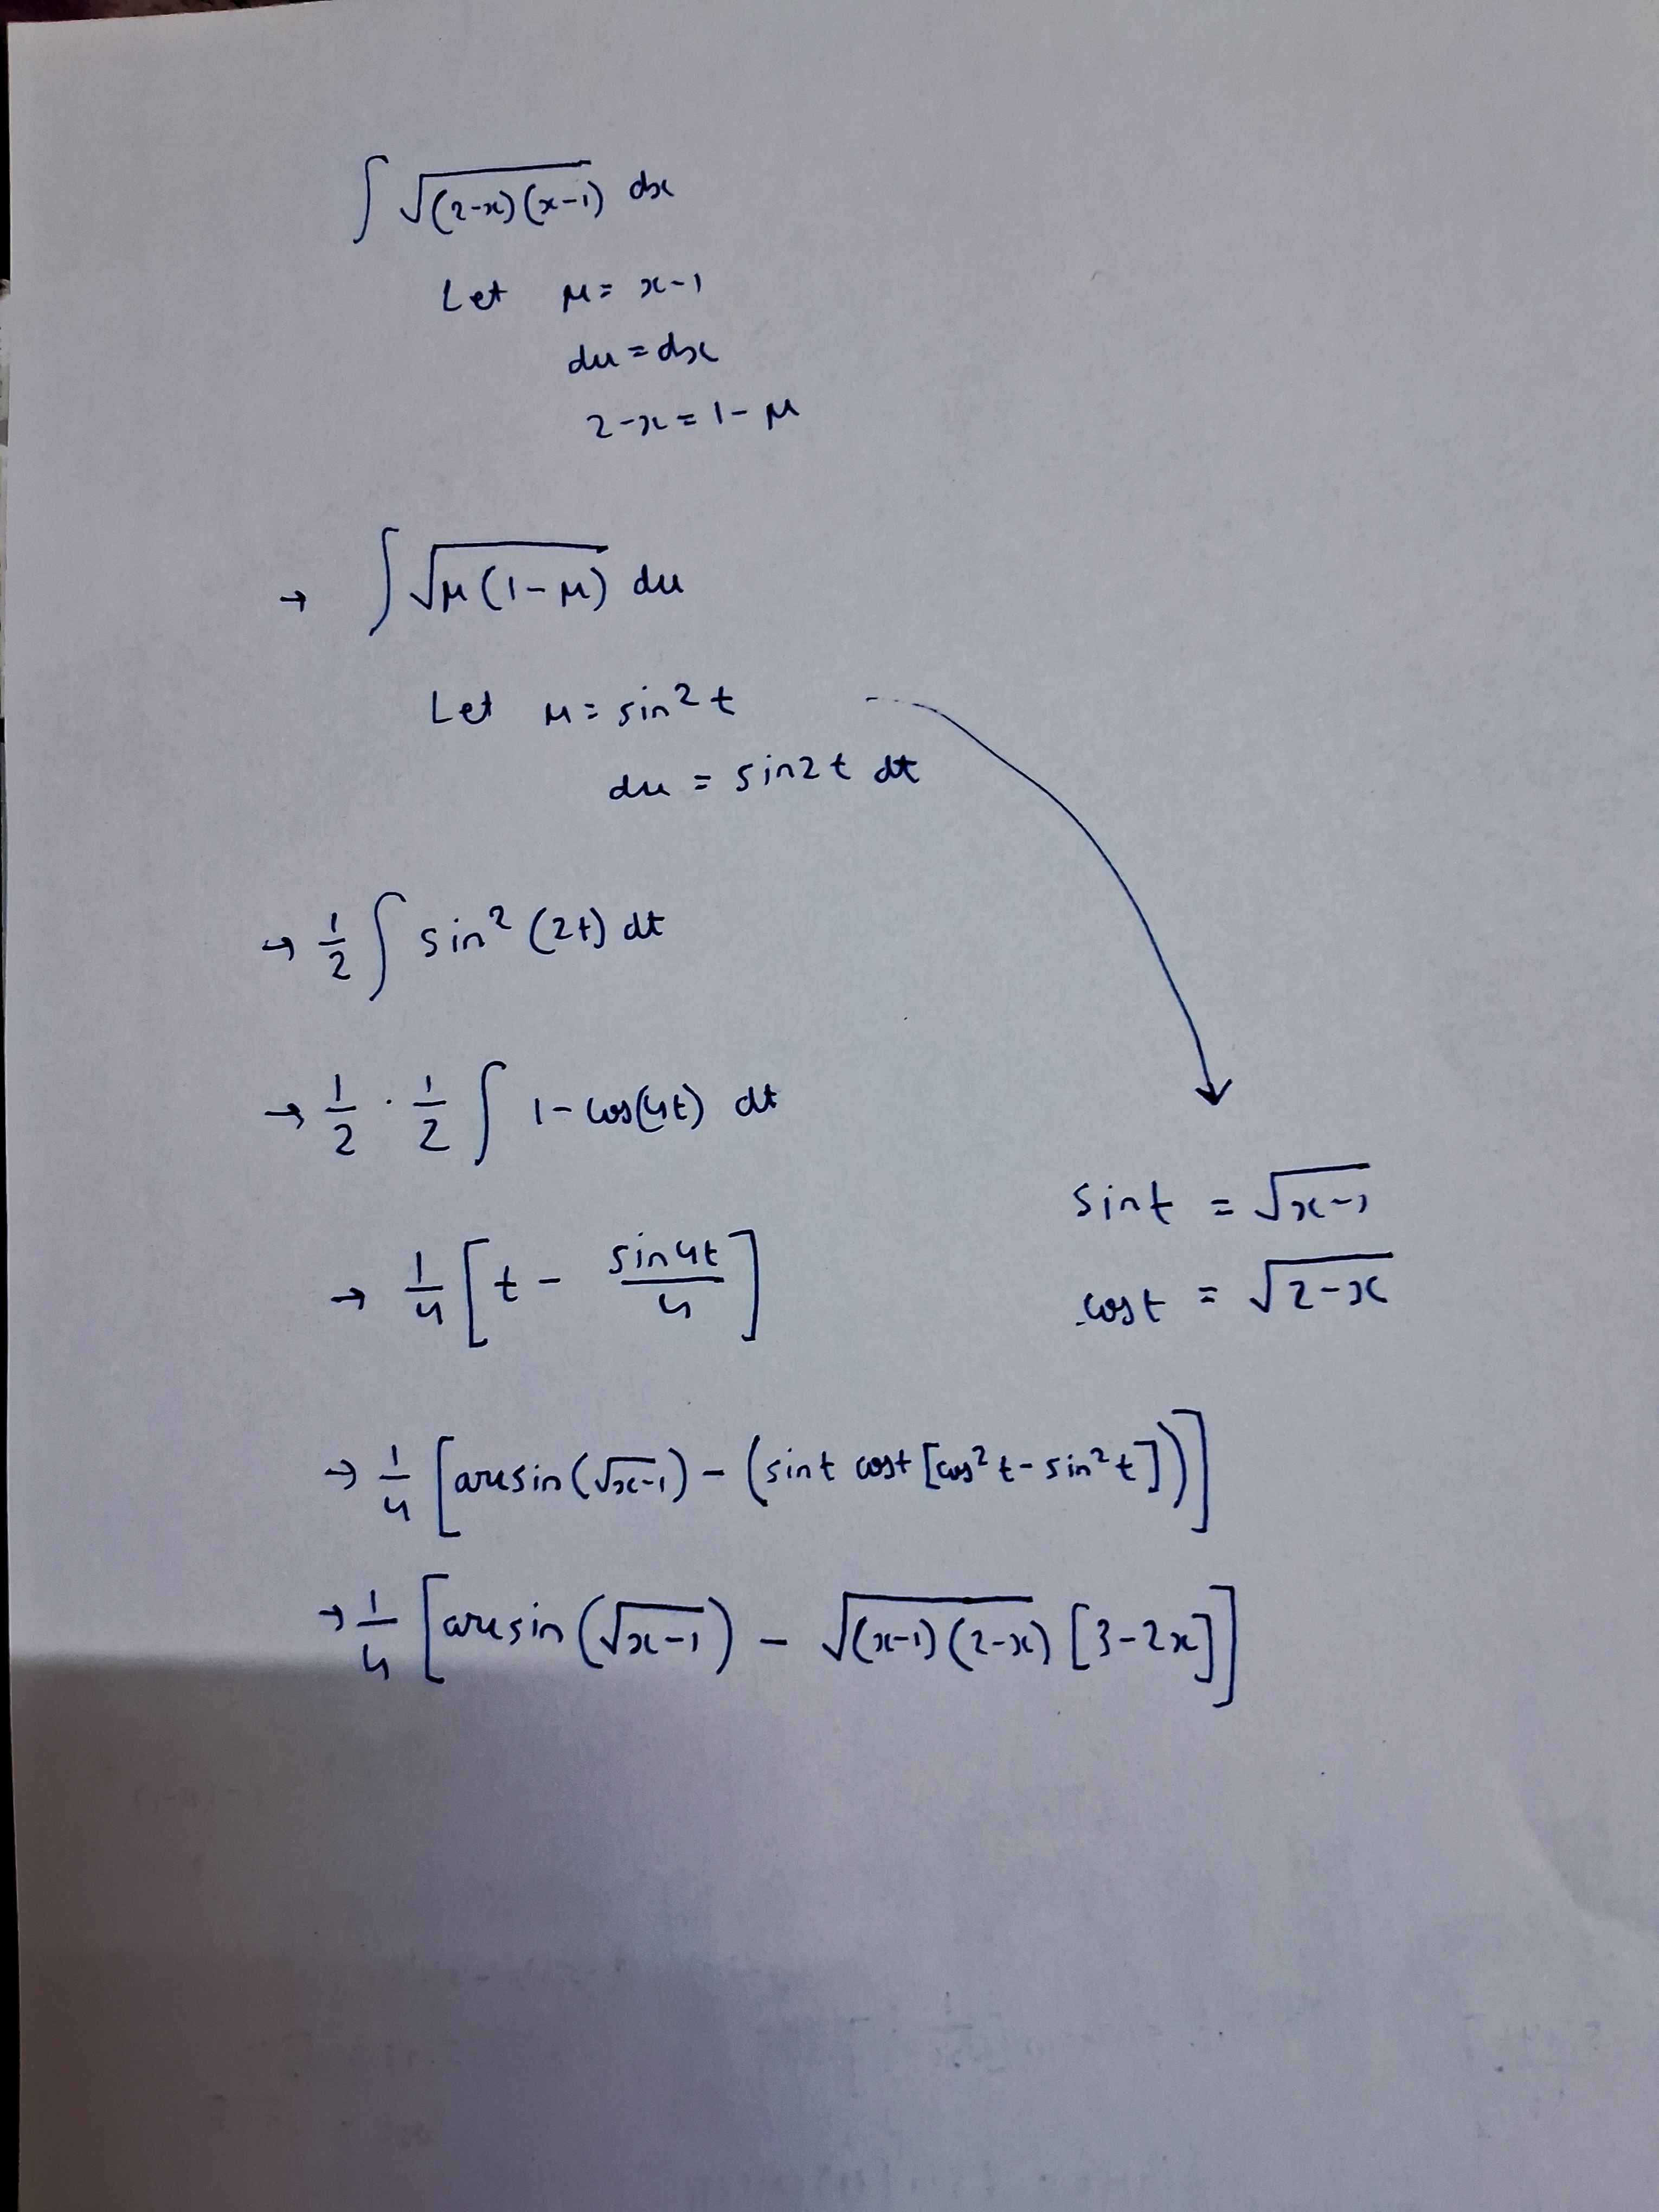 ∫ √(2-x)(x-1) dx
Let μ = x-1
du = dx
2-x = 1-μ
→ ∫ √μ(1-μ) du
Let μ = sin²t
du = sin2t dt
→ 1/2 ∫ sin²(2t) dt
→ 1/2 · 1/2 ∫ 1-cos(4t) dt
→ 1/4 [t - sin4t/4]
sint = √x-1
cost = √2-x
→ 1/4 [arcsin(√x-1) - (sint cost [cos²t - sin²t])]
→ 1/4 [arcsin(√x-1) - √(x-1)(2-x) [3-2x]]